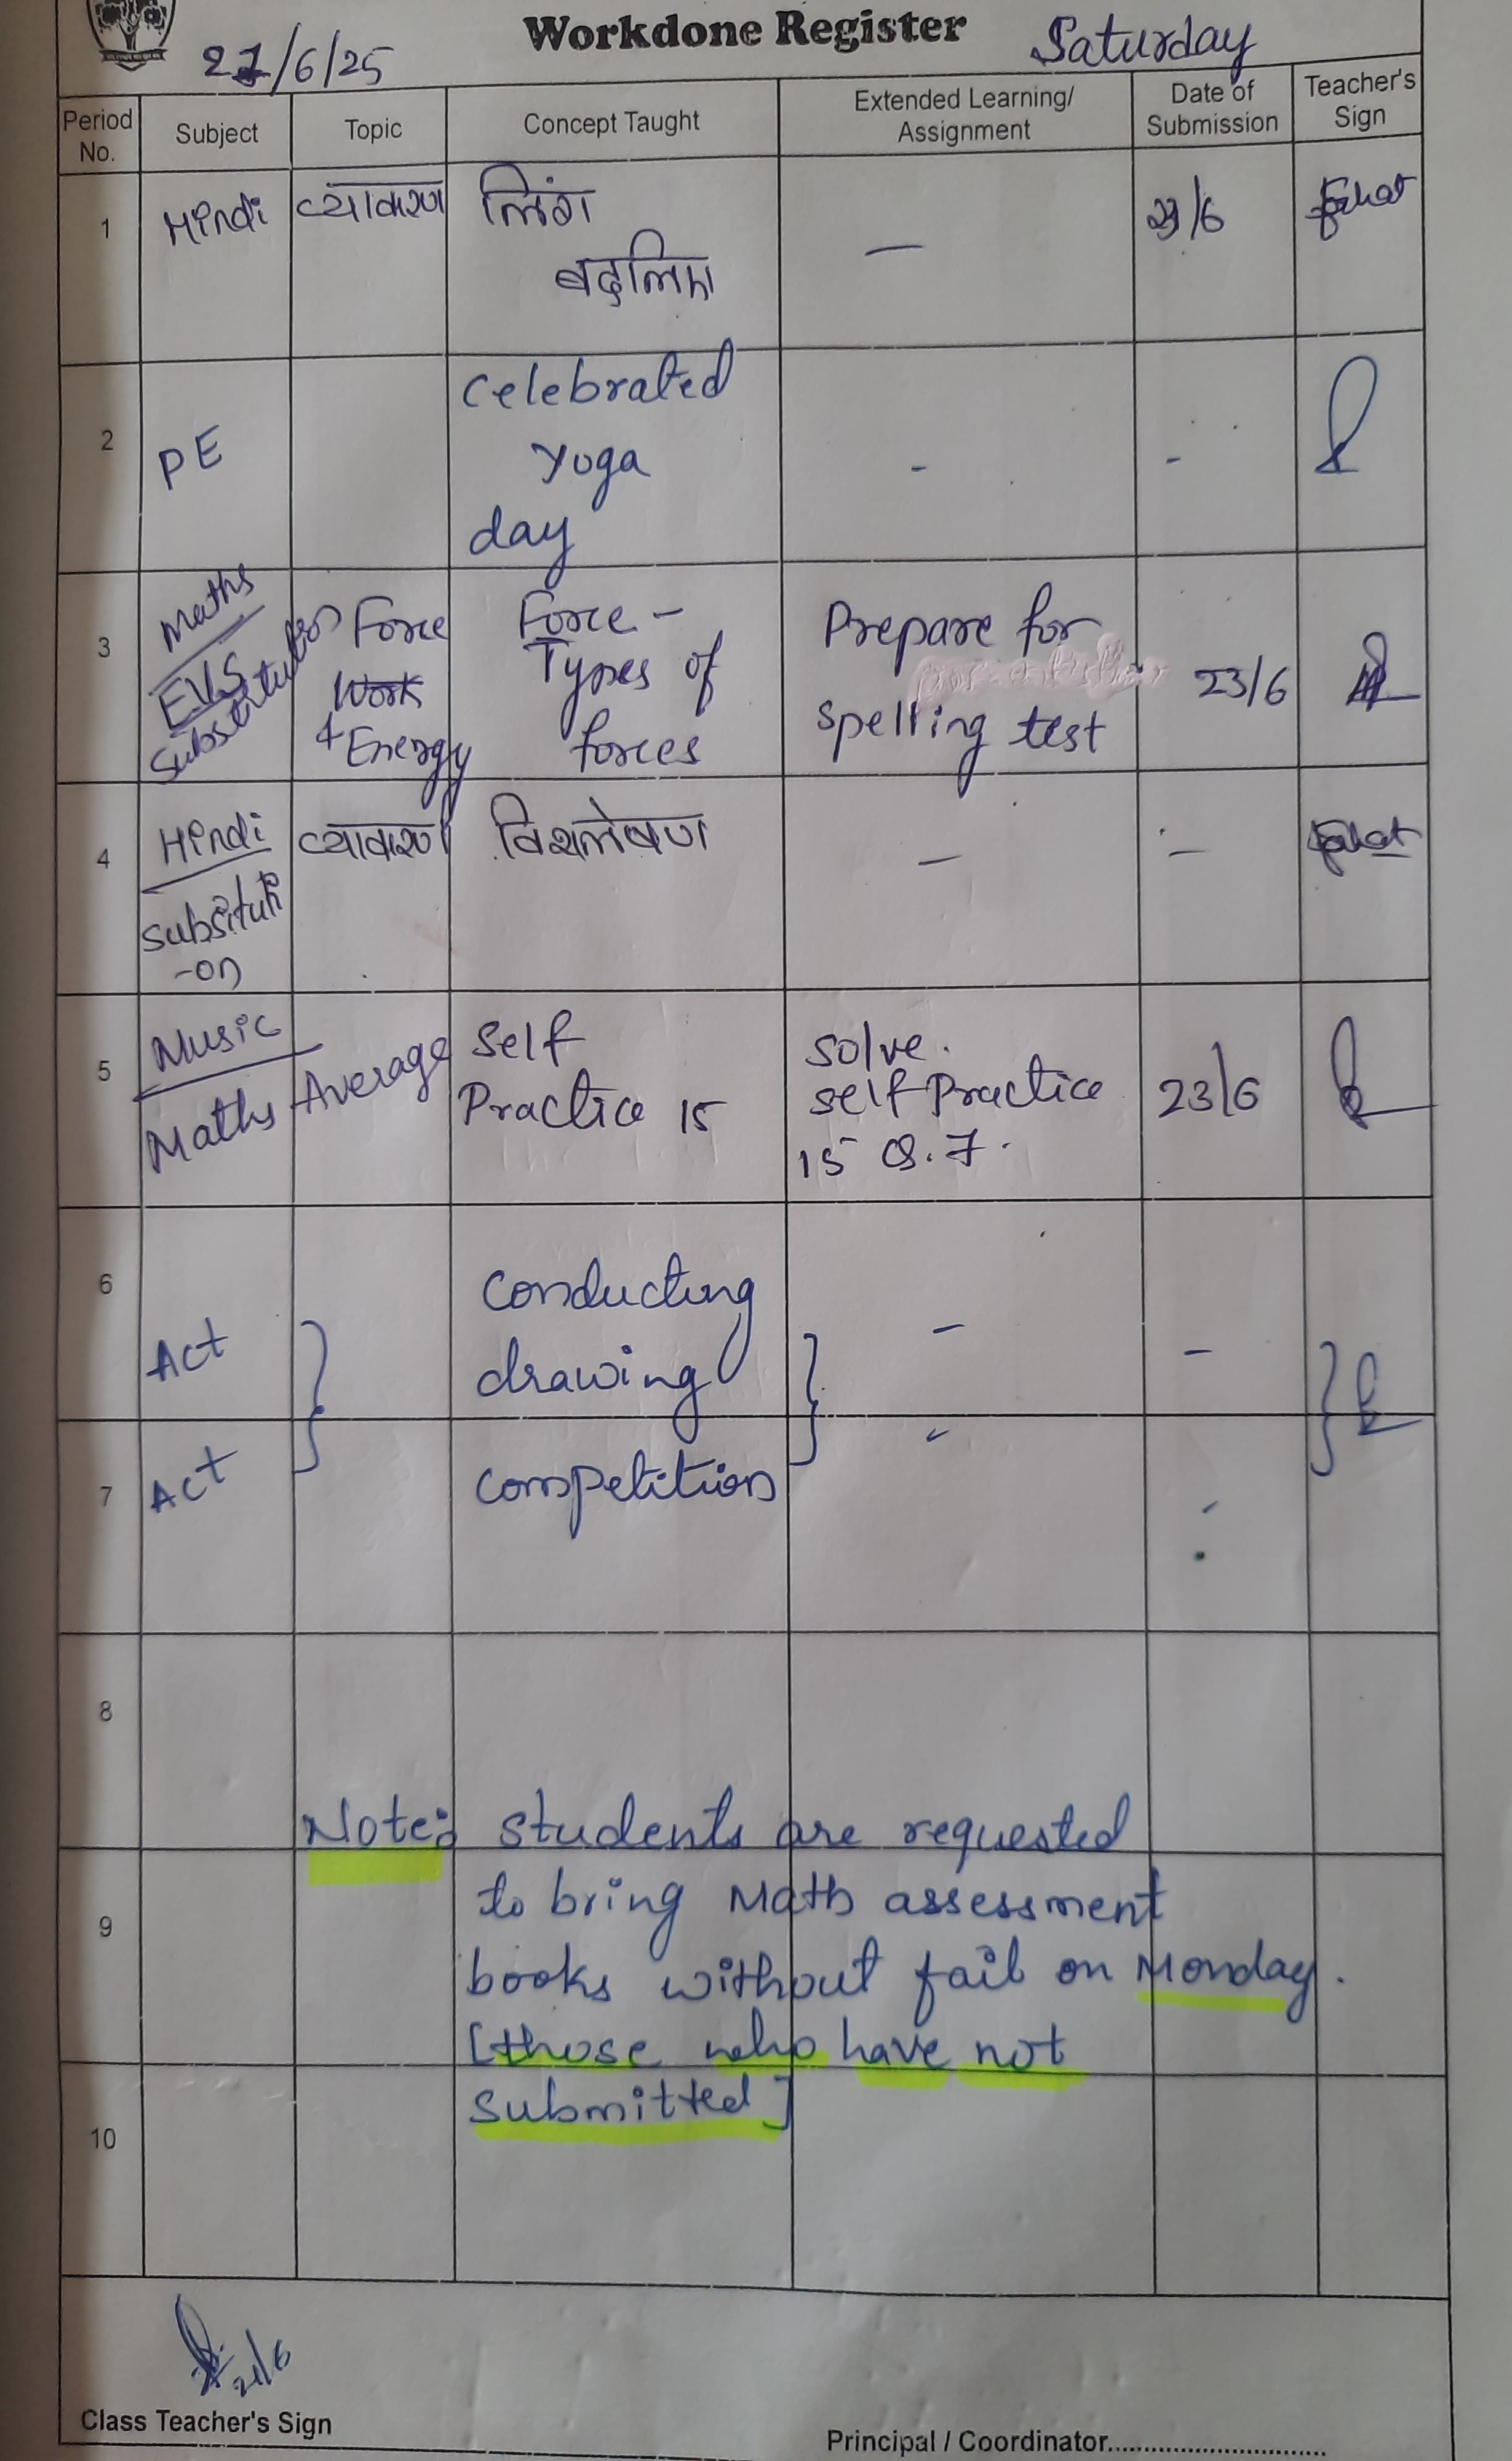 Workdone Register
21/6/25 Saturday
Period No. Subject Topic Concept Taught Extended Learning/ Assignment Date of Submission Teacher's Sign
1 Hindi व्याकरण लिंग — 23/6
बदलिए
2 PE Celebrated - -
Yoga
day
3 Maths Force Force - Prepare for 23/6
EVS Work Types of spelling test
Substitution & Energy forces
4 Hindi व्याकरण विश्लेषण — —
Substituti
-on
5 Music Average Self solve. 23/6
Maths Practice 15 self Practice
15 Q.7.
6 Act Conducting - -
drawing
7 Act competition - -
8
Note: students are requested
9 to bring Math assessment
books without fail on Monday.
[those who have not
10 submitted]
21/6
Class Teacher's Sign
Principal / Coordinator..............................